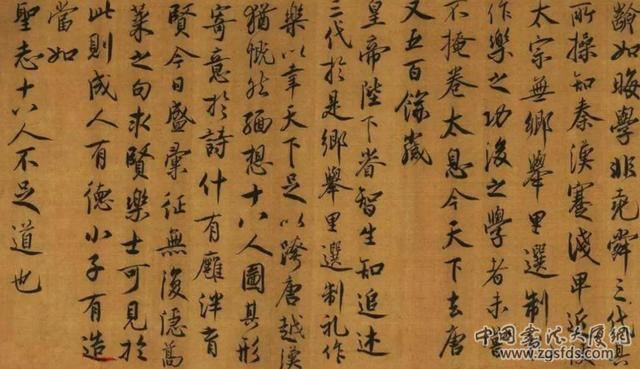 龄如晦學非堯舜三代其
所操知秦漢蹇淺卑近故
太宗無鄉舉里選制
作樂之功後之學者未嘗
不掩卷太息今天下去唐
又五百餘歲
皇帝陛下睿智生知追述
三代於是鄉舉里選制礼作
樂以幸天下足以跨唐越漢
猶慨然緬想十八人圖其形
寄意於詩什有廱泮育
賢今日盛彙征無復隱蒿
萊之句求賢樂士可見於
此則成人有德小子有造
當如
聖志十八人不足道也
中國書法大網
www.zgsfds.com